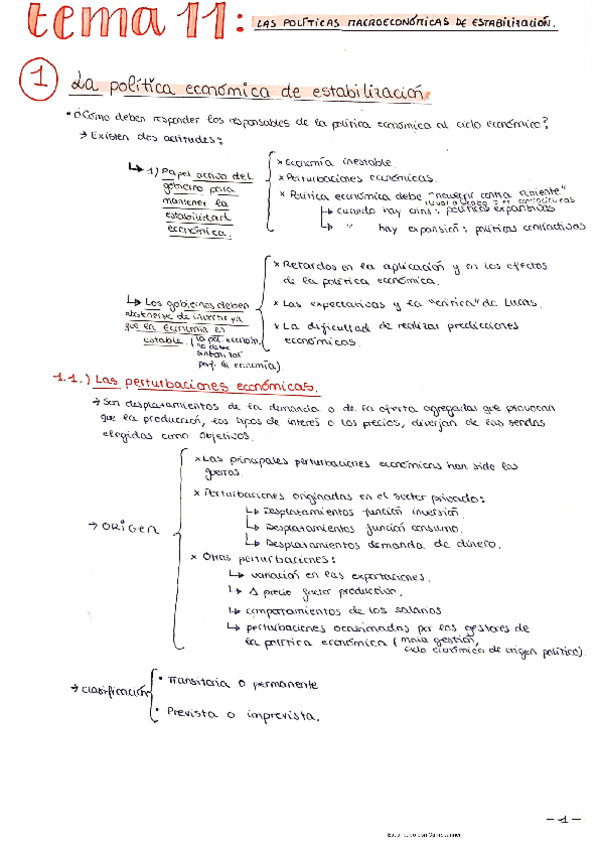 tema 11: LAS POLÍTICAS MACROECONÓMICAS DE ESTABILIZACIÓN.
1 La política económica de estabilización
• ¿Cómo deben responder los responsables de la política económica al ciclo económico?
→ Existen dos actitudes:
↳ 1) Papel activo del
gobierno para
mantener la
estabilidad
económica.
× Economía inestable.
× Perturbaciones económicas.
× Política económica debe "navegar contra corriente"
↳ cuando hay crisis: políticas expansivas
↳ " hay expansión: políticas contractivas
↳ Los gobiernos deben
abstenerse de invertir ya
que la Economía es
estable. (la pol. econom.
no debe
por la economía).
× Retardos en la aplicación y en los efectos
de la política económica.
× Las expectativas y la "crítica" de Lucas.
× La dificultad de realizar predicciones
económicas.
1.1.) Las perturbaciones económicas.
→ Son desplazamientos de la demanda o de la oferta agregadas que provocan
que la producción, los tipos de interés o los precios, diverjan de las sendas
elegidas como objetivos.
→ ORIGEN
× Las principales perturbaciones económicas han sido las
guerras.
× Perturbaciones originadas en el sector privado:
↳ Desplazamientos función inversión.
↳ Desplazamientos función consumo.
↳ Desplazamientos demanda de dinero.
× Otras perturbaciones:
↳ variación en las exportaciones.
↳ Δ precio factor productivo.
↳ comportamientos de los salarios
↳ perturbaciones ocasionadas por los gestores de
la política económica (mala gestión,
ciclo económico de origen político).
→ clasificación
• Transitoria o permanente
• Prevista o imprevista.
-1-